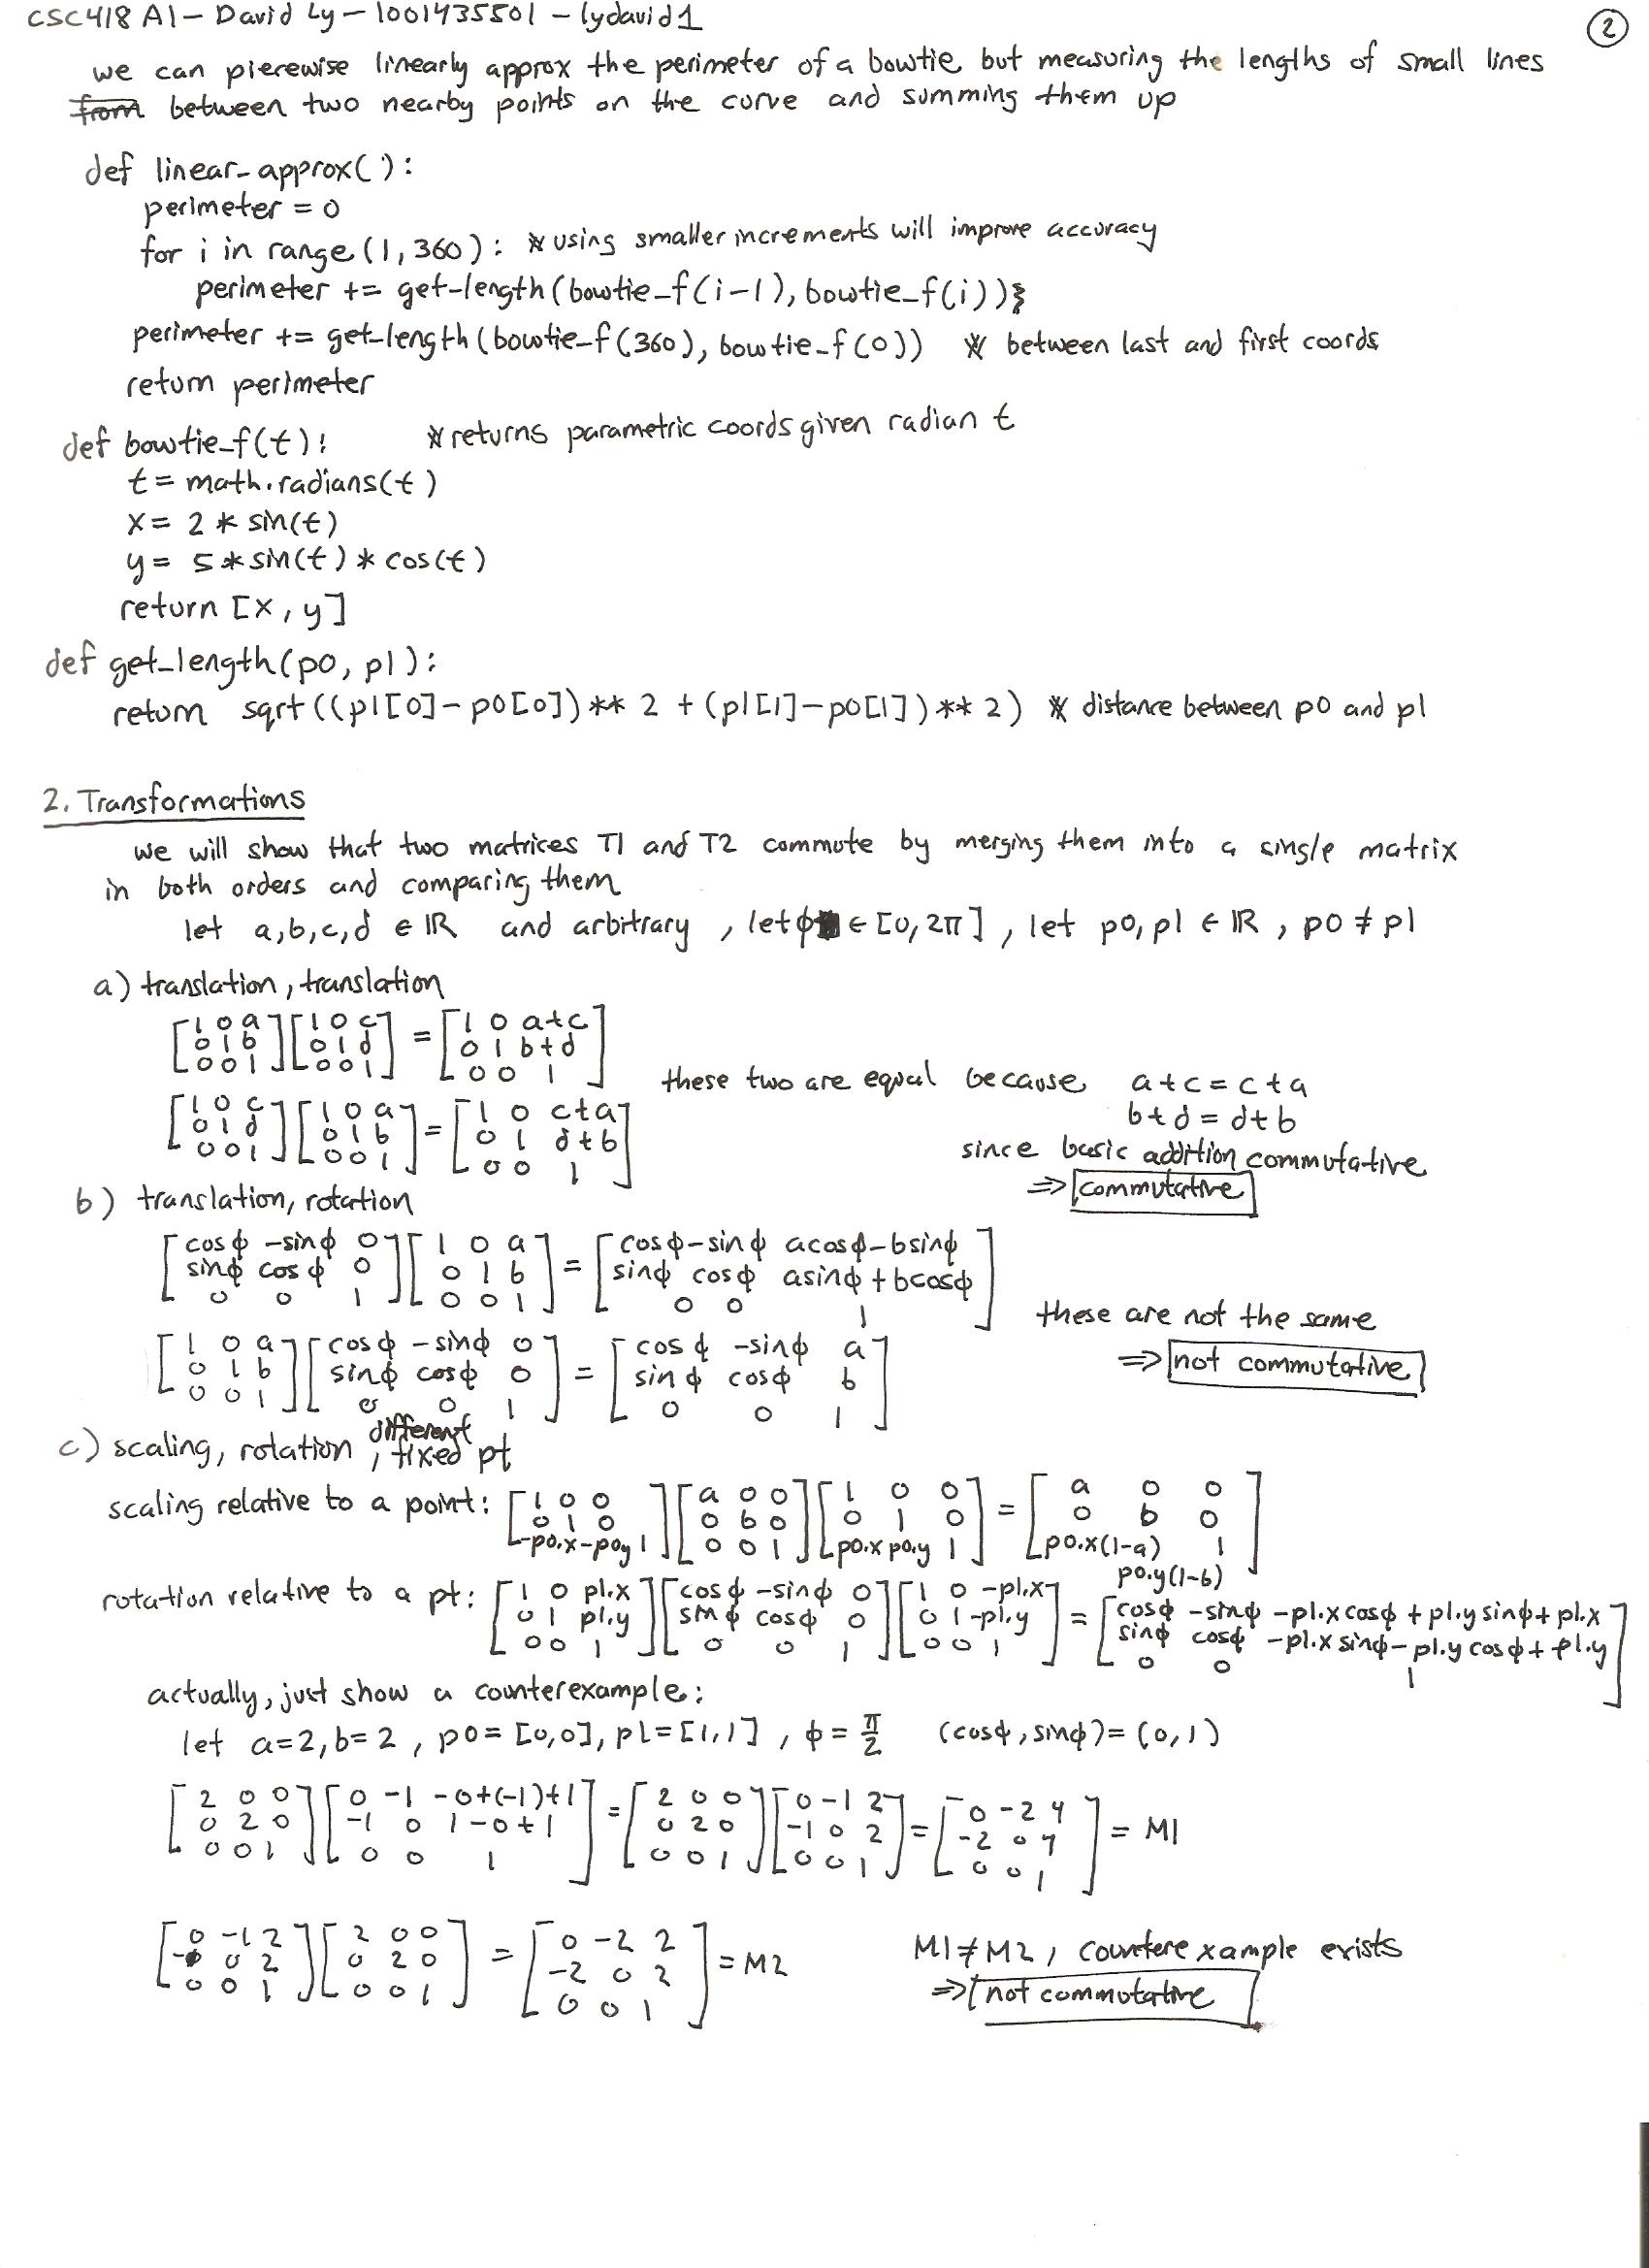 CSC418 A1 - David Ly - 1001435501 - lydavid1
2
we can piecewise linearly approx the perimeter of a bowtie but measuring the lengths of small lines
from between two nearby points on the curve and summing them up
def linear_approx():
perimeter = 0
for i in range(1, 360): # using smaller increments will improve accuracy
perimeter += get_length(bowtie_f(i-1), bowtie_f(i))}
perimeter += get_length(bowtie_f(360), bowtie_f(0)) # between last and first coords
return perimeter
def bowtie_f(t): # returns parametric coords given radian t
t = math.radians(t)
x = 2 * sin(t)
y = 5 * sin(t) * cos(t)
return [x, y]
def get_length(p0, p1):
return sqrt((p1[0] - p0[0]) ** 2 + (p1[1] - p0[1]) ** 2) # distance between p0 and p1
2. Transformations
we will show that two matrices T1 and T2 commute by merging them into a single matrix
in both orders and comparing them
let a,b,c,d ∈ ℝ and arbitrary, let ϕ ∈ [0, 2π], let p0, p1 ∈ ℝ, p0 ≠ p1
a) translation, translation
[1 0 a] [1 0 c] = [1 0 a+c]
[0 1 b] [0 1 d] [0 1 b+d]
[0 0 1] [0 0 1] [0 0 1]
these two are equal because a+c = c+a
b+d = d+b
[1 0 c] [1 0 a] = [1 0 c+a]
[0 1 d] [0 1 b] [0 1 d+b]
[0 0 1] [0 0 1] [0 0 1]
since basic addition commutative
⇒ commutative
b) translation, rotation
[cosϕ -sinϕ 0] [1 0 a] = [cosϕ -sinϕ acosϕ-bsinϕ]
[sinϕ cosϕ 0] [0 1 b] [sinϕ cosϕ asinϕ+bcosϕ]
[0 0 1] [0 0 1] [0 0 1]
these are not the same
[1 0 a] [cosϕ -sinϕ 0] = [cosϕ -sinϕ a]
[0 1 b] [sinϕ cosϕ 0] [sinϕ cosϕ b]
[0 0 1] [0 0 1] [0 0 1]
⇒ not commutative
c) scaling, rotation, different fixed pt
scaling relative to a point: [1 0 0] [a 0 0] [1 0 0] = [a 0 0]
[0 1 0] [0 b 0] [0 1 0] [0 b 0]
[-p0.x -p0.y 1] [0 0 1] [p0.x p0.y 1] [p0.x(1-a) p0.y(1-b) 1]
rotation relative to a pt: [1 0 p1.x] [cosϕ -sinϕ 0] [1 0 -p1.x] = [cosϕ -sinϕ -p1.xcosϕ + p1.ysinϕ + p1.x]
[0 1 p1.y] [sinϕ cosϕ 0] [0 1 -p1.y] [sinϕ cosϕ -p1.xsinϕ - p1.ycosϕ + p1.y]
[0 0 1] [0 0 1] [0 0 1] [0 0 1]
actually, just show a counterexample:
let a=2, b=2, p0 = [0,0], p1 = [1,1], ϕ = π/2 (cosϕ, sinϕ) = (0,1)
[2 0 0] [0 -1 -0+(-1)+1] = [2 0 0] [0 -1 2] = [0 -2 4] = M1
[0 2 0] [-1 0 1-0+1] [0 2 0] [-1 0 2] [-2 0 4]
[0 0 1] [0 0 1] [0 0 1] [0 0 1] [0 0 1]
[0 -1 2] [2 0 0] = [0 -2 2] = M2
[-1 0 2] [0 2 0] [-2 0 2]
[0 0 1] [0 0 1] [0 0 1]
M1 ≠ M2, counterexample exists
⇒ not commutative